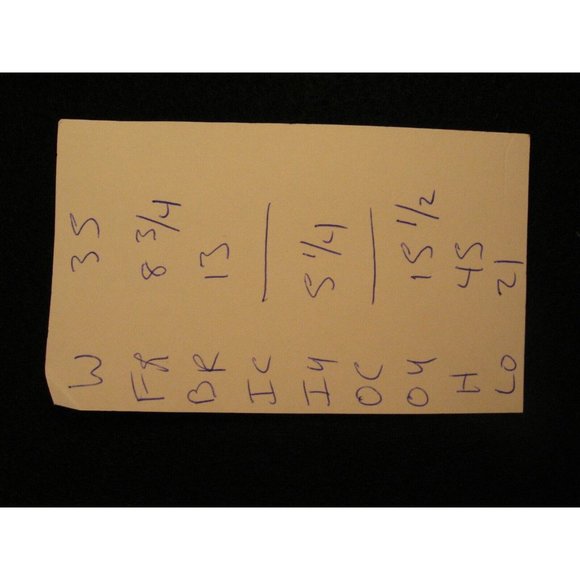 W 35
FR 8 3/4
BR 13
IC —
I4 5 1/4
OC —
O4 15 1/2
H 45
LO 21